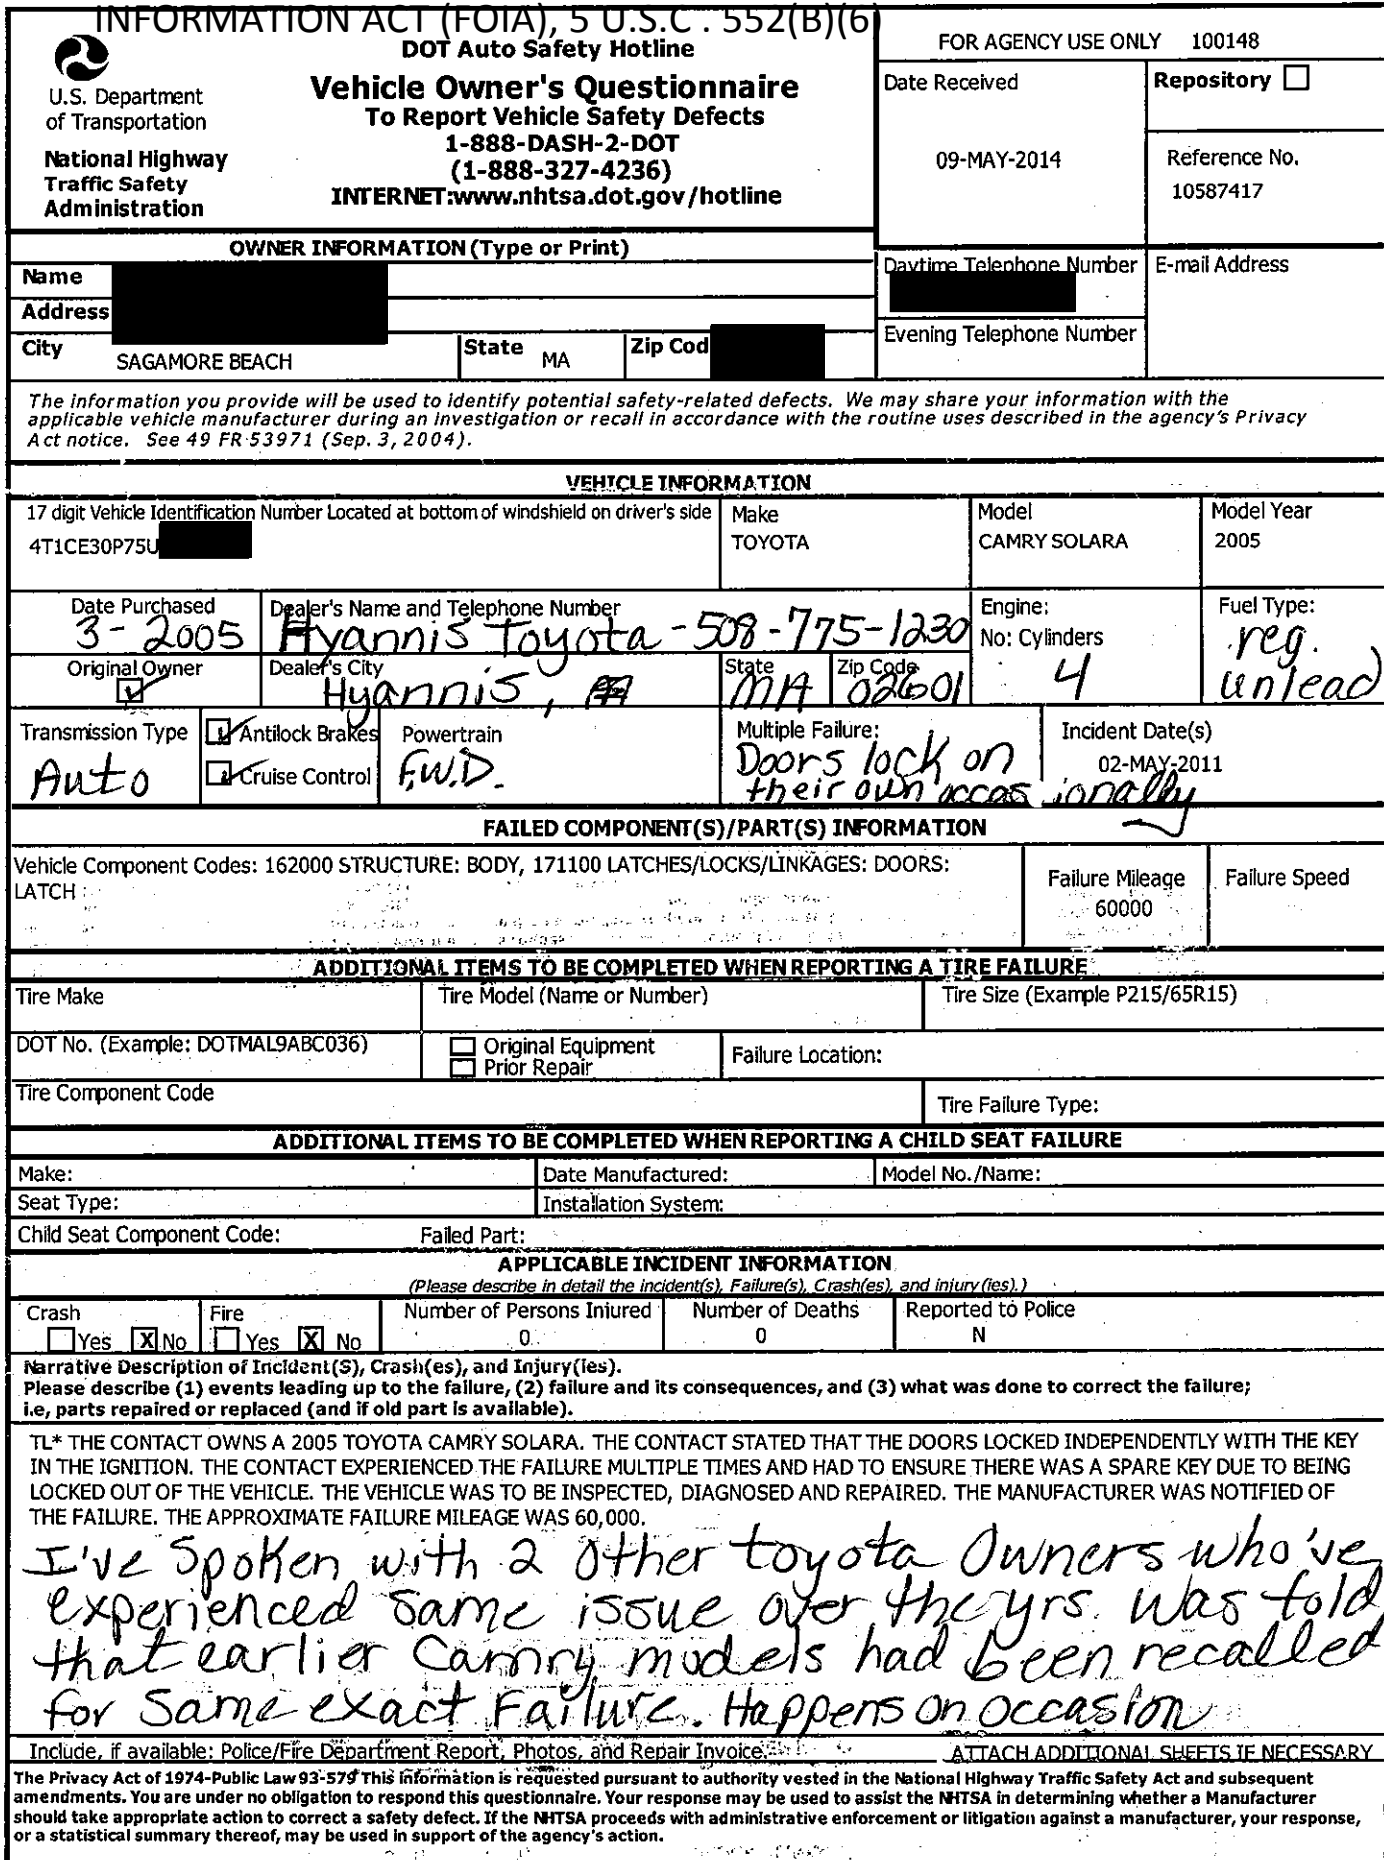 INFORMATION ACT (FOIA), 5 U.S.C . 552(B)(6)
U.S. Department
of Transportation
National Highway
Traffic Safety
Administration
DOT Auto Safety Hotline
Vehicle Owner's Questionnaire
To Report Vehicle Safety Defects
1-888-DASH-2-DOT
(1-888-327-4236)
INTERNET:www.nhtsa.dot.gov/hotline
FOR AGENCY USE ONLY 100148
Date Received
09-MAY-2014
Repository
Reference No.
10587417
OWNER INFORMATION (Type or Print)
Name
Address
City SAGAMORE BEACH State MA Zip Cod
Daytime Telephone Number
E-mail Address
Evening Telephone Number
The information you provide will be used to identify potential safety-related defects. We may share your information with the
applicable vehicle manufacturer during an investigation or recall in accordance with the routine uses described in the agency's Privacy
Act notice. See 49 FR 53971 (Sep. 3, 2004).
VEHICLE INFORMATION
17 digit Vehicle Identification Number Located at bottom of windshield on driver's side
4T1CE30P75U
Make
TOYOTA
Model
CAMRY SOLARA
Model Year
2005
Date Purchased
3-2005
Dealer's Name and Telephone Number
Hyannis Toyota - 508-775-1230
Engine:
No: Cylinders
4
Fuel Type:
reg.
unlead
Original Owner
Dealer's City
Hyannis,
State
MA
Zip Code
02601
Transmission Type
Auto
Antilock Brakes
Cruise Control
Powertrain
F.W.D.
Multiple Failure:
Doors lock on
their own occasionally
Incident Date(s)
02-MAY-2011
FAILED COMPONENT(S)/PART(S) INFORMATION
Vehicle Component Codes: 162000 STRUCTURE: BODY, 171100 LATCHES/LOCKS/LINKAGES: DOORS:
LATCH
Failure Mileage
60000
Failure Speed
ADDITIONAL ITEMS TO BE COMPLETED WHEN REPORTING A TIRE FAILURE
Tire Make
Tire Model (Name or Number)
Tire Size (Example P215/65R15)
DOT No. (Example: DOTMAL9ABC036)
Original Equipment
Prior Repair
Failure Location:
Tire Component Code
Tire Failure Type:
ADDITIONAL ITEMS TO BE COMPLETED WHEN REPORTING A CHILD SEAT FAILURE
Make: Date Manufactured: Model No./Name:
Seat Type: Installation System:
Child Seat Component Code: Failed Part:
APPLICABLE INCIDENT INFORMATION
(Please describe in detail the incident(s), Failure(s), Crash(es), and injury(ies).)
Crash
Yes X No
Fire
Yes X No
Number of Persons Injured
0
Number of Deaths
0
Reported to Police
N
Narrative Description of Incident(S), Crash(es), and Injury(ies).
Please describe (1) events leading up to the failure, (2) failure and its consequences, and (3) what was done to correct the failure;
i.e, parts repaired or replaced (and if old part is available).
TL* THE CONTACT OWNS A 2005 TOYOTA CAMRY SOLARA. THE CONTACT STATED THAT THE DOORS LOCKED INDEPENDENTLY WITH THE KEY
IN THE IGNITION. THE CONTACT EXPERIENCED THE FAILURE MULTIPLE TIMES AND HAD TO ENSURE THERE WAS A SPARE KEY DUE TO BEING
LOCKED OUT OF THE VEHICLE. THE VEHICLE WAS TO BE INSPECTED, DIAGNOSED AND REPAIRED. THE MANUFACTURER WAS NOTIFIED OF
THE FAILURE. THE APPROXIMATE FAILURE MILEAGE WAS 60,000.
I've spoken with 2 other toyota owners who've
experienced same issue over the yrs. Was told
that earlier Camry models had been recalled
for same exact Failure. Happens on occasion
Include, if available: Police/Fire Department Report, Photos, and Repair Invoice. ATTACH ADDITIONAL SHEETS IF NECESSARY
The Privacy Act of 1974-Public Law 93-579 This information is requested pursuant to authority vested in the National Highway Traffic Safety Act and subsequent
amendments. You are under no obligation to respond this questionnaire. Your response may be used to assist the NHTSA in determining whether a Manufacturer
should take appropriate action to correct a safety defect. If the NHTSA proceeds with administrative enforcement or litigation against a manufacturer, your response,
or a statistical summary thereof, may be used in support of the agency's action.